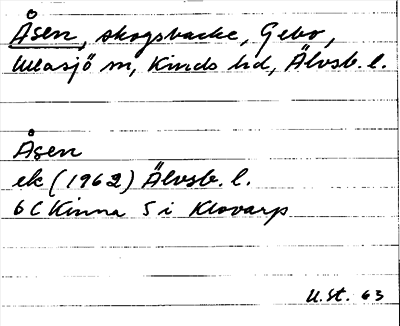 Åsen, skogsbacke, Gebo,
Ullasjö sn, Kinds hd, Älvsb. l.
Åsen
ek (1962) Älvsb. l.
6C Kinna 5 i Klovarp
U.St. 63